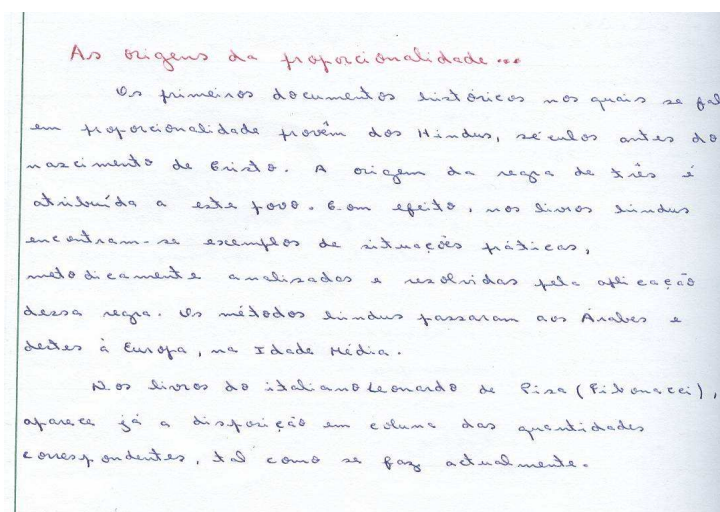 As origens da proporcionalidade...
Os primeiros documentos históricos nos quais se fal
em proporcionalidade provêm dos Hindus, séculos antes do
nascimento de Cristo. A origem da regra de três é
atribuída a este povo. Com efeito, nos livros hindus
encontram-se exemplos de situações práticas,
metodicamente analisadas e resolvidas pela aplicação
dessa regra. Os métodos hindus passaram aos Árabes e
destes à Europa, na Idade Média.
Nos livros do italiano Leonardo de Pisa (Fibonacci),
aparece já a disposição em coluna das quantidades
correspondentes, tal como se faz actualmente.